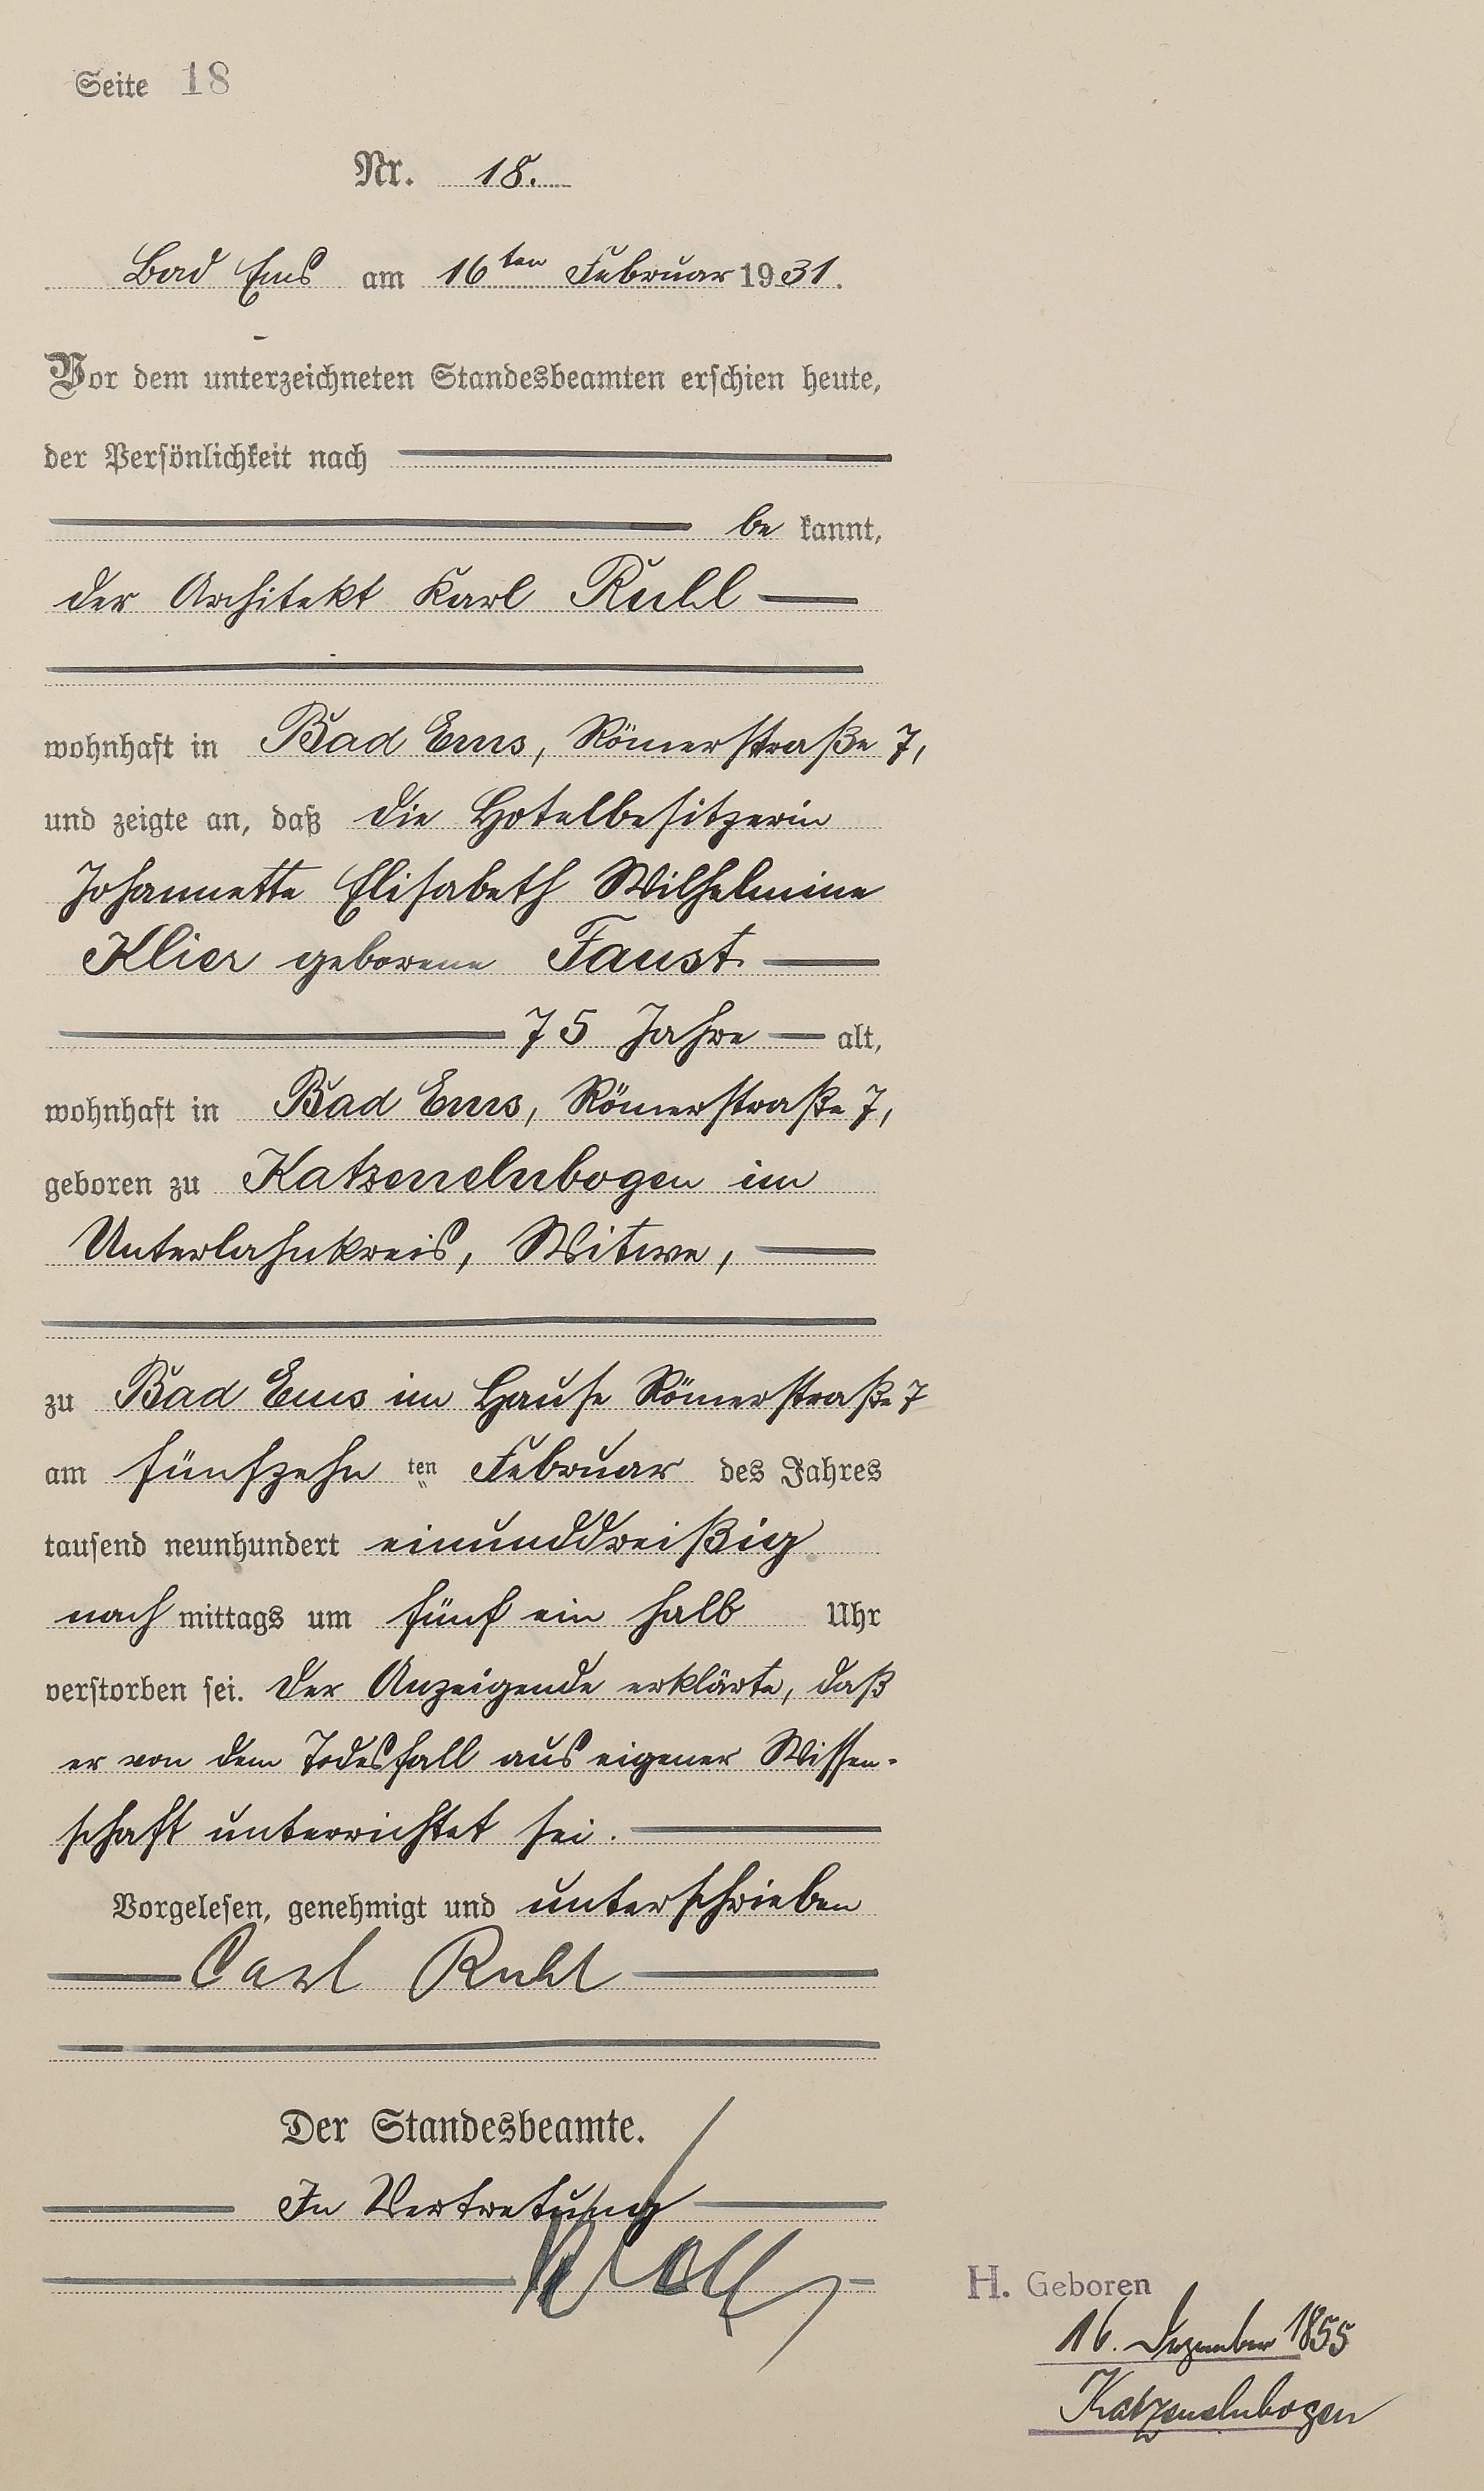 Seite 18
Nr. 18.
Bad Ems am 16ten Februar 1931.
Vor dem unterzeichneten Standesbeamten erschien heute,
der Persönlichkeit nach
be kannt,
der Architekt Karl Ruhl
wohnhaft in Bad Ems, Römerstraße 7,
und zeigte an, daß die Hotelbesitzerin
Johannette Elisabeth Wilhelmine
Klier geborene Faust
75 Jahre alt,
wohnhaft in Bad Ems, Römerstraße 7,
geboren zu Katzenelnbogen im
Unterlahnkreis, Witwe,
zu Bad Ems im Hause Römerstraße 7
am fünfzehn ten Februar des Jahres
tausend neunhundert einunddreißig
nach mittags um fünf ein halb Uhr
verstorben sei. Der Anzeigende erklärte, daß
er von dem Todesfall aus eigener Wissen-
schaft unterrichtet sei.
Vorgelesen, genehmigt und unterschrieben
Carl Ruhl
Der Standesbeamte.
In Vertretung
H. Geboren
16. Dezember 1855
Katzenelnbogen